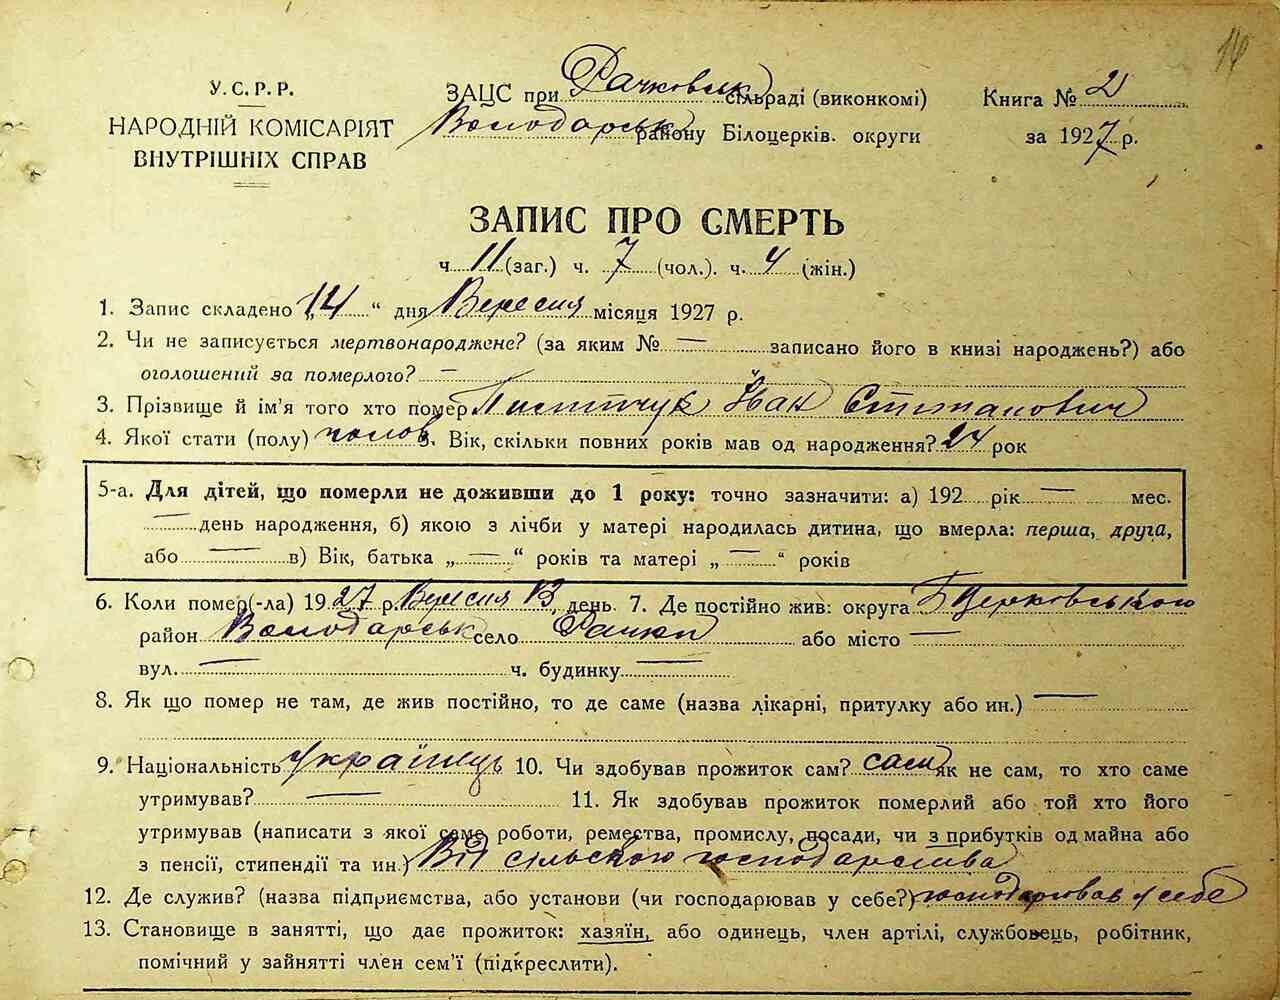 14
У.С.Р.Р.
НАРОДНІЙ КОМІСАРІЯТ
ВНУТРІШНІХ СПРАВ
ЗАЦС при Рачковськ сільраді (виконкомі) Книга № 2
Володарськ району Білоцерків. округи за 1927 р.
ЗАПИС ПРО СМЕРТЬ
ч 11 (заг.) ч. 7 (чол.). ч. 4 (жін.)
1. Запис складено „14“ дня Вересня місяця 1927 р.
2. Чи не записується мертвонароджене? (за яким № — записано його в книзі народжень?) або
оголошений за померлого? —
3. Прізвище й ім'я того хто помер Іван Степанович
4. Якої стати (полу) чолов. 5. Вік, скільки повних років мав од народження? 24 рок
5-а. Для дітей, що померли не доживши до 1 року: точно зазначити: а) 192 рік — мес.
— день народження, б) якою з лічби у матері народилась дитина, що вмерла: перша, друга,
або — в) Вік, батька „—“ років та матері „—“ років
6. Коли помер(-ла) 1927 р. Вересня 13 день 7. Де постійно жив: округа Б Церковського
район Володарськ село Рачки або місто —
вул. — ч. будинку —
8. Як що помер не там, де жив постійно, то де саме (назва лікарні, притулку або ин.) —
9. Національність Українець 10. Чи здобував прожиток сам? сам як не сам, то хто саме
утримував? — 11. Як здобував прожиток померлий або той хто його
утримував (написати з якої саме роботи, ремества, промислу, посади, чи з прибутків од майна або
з пенсії, стипендії та ин.) Від сільського господарства
12. Де служив? (назва підприємства, або установи (чи господарював у себе?) господарював у себе
13. Становище в занятті, що дає прожиток: хазяїн, або одинець, член артілі, службовець, робітник,
помічний у зайнятті член сем'ї (підкреслити).